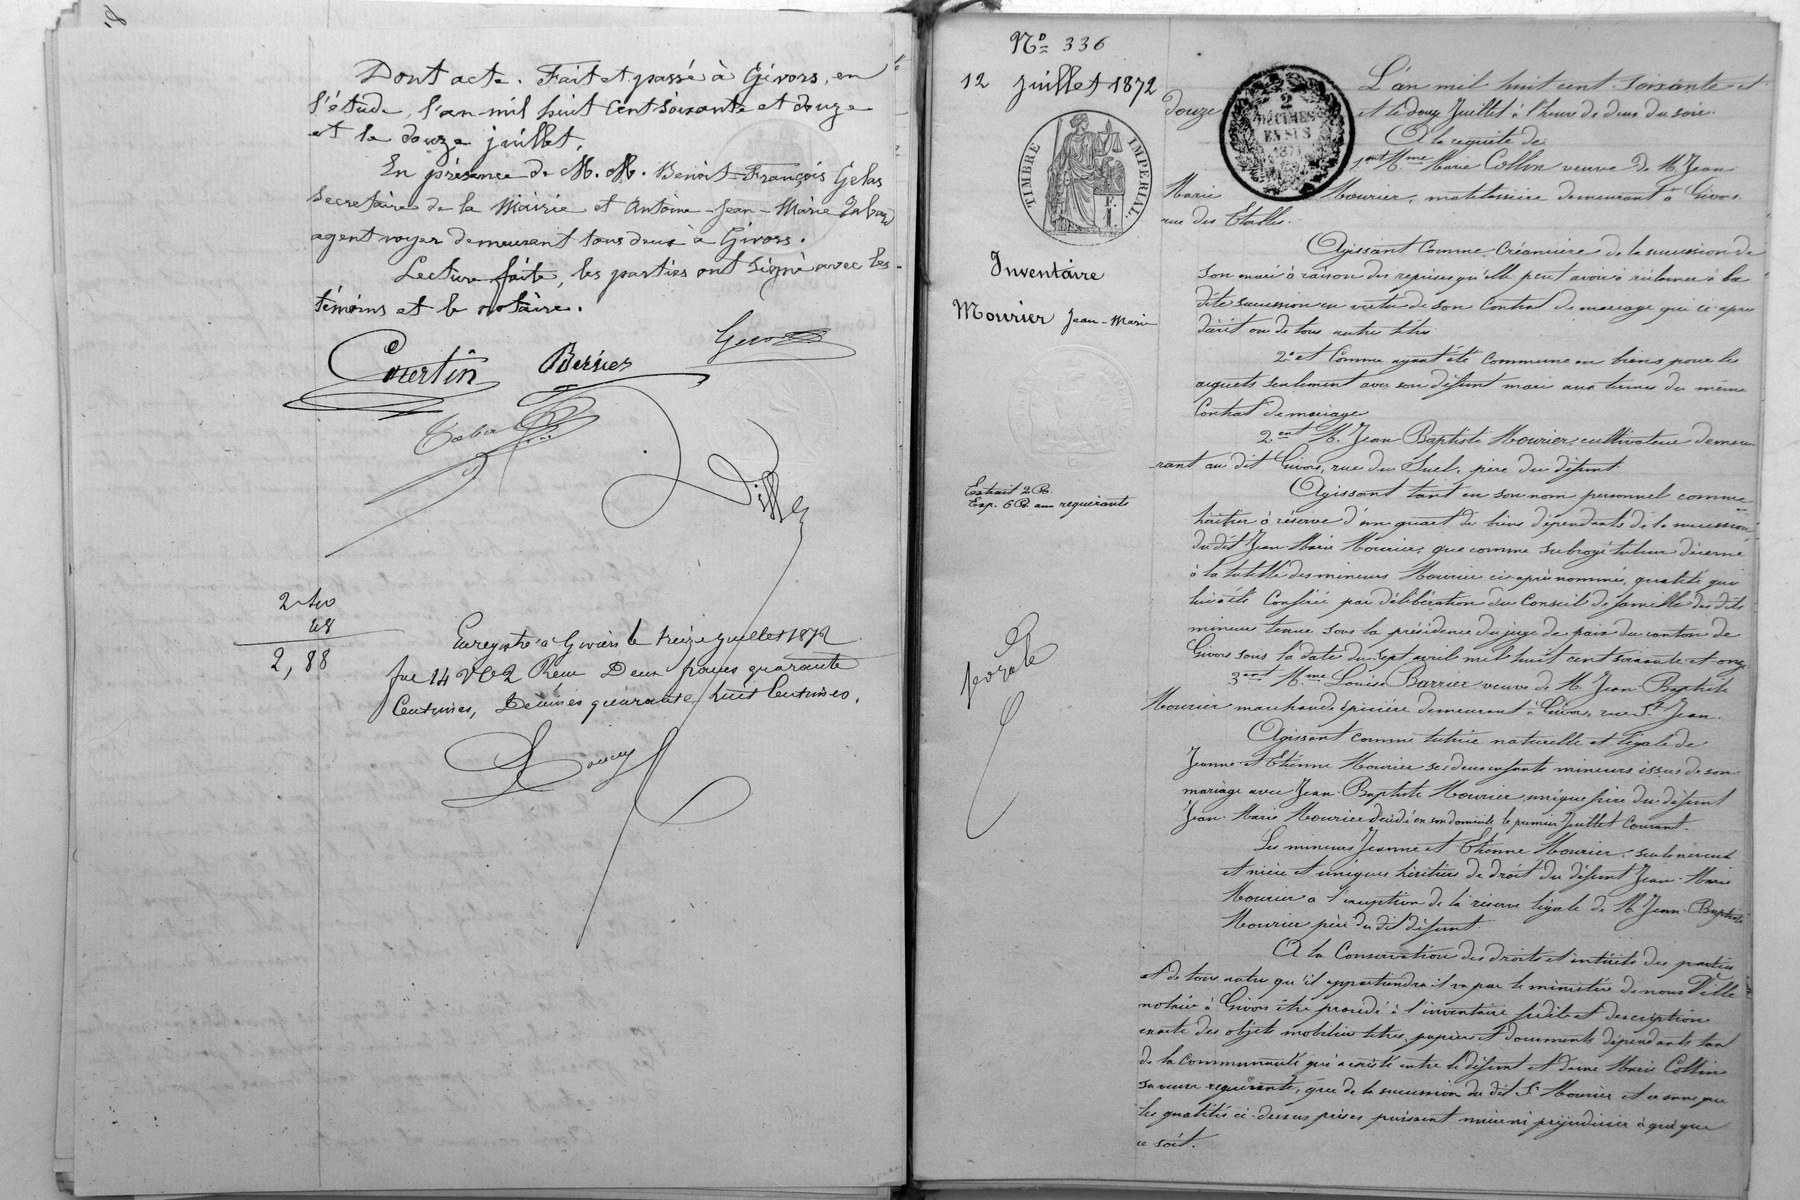 8.
Dont acte. Fait et passé à Givors, en
l'étude, l'an mil huit cent soixante et douze
et le douze juillet.
En présence de M. M. Benoit-François Gelas
secretaire de la Mairie et Antoine-Jean-Marie
agent voyer demeurant tous deux à Givors.
Lecture faite, les parties ont signé avec les
témoins et le notaire.
Courtin Bernier
Ville
2,40
48
2,88
Enregistré à Givors le treize juillet 1872
f° 14 V C 2 Reçu Deux francs quarante
Centimes, Décimes quarante huit Centimes.
N° 336
12 Juillet 1872
TIMBRE IMPERIAL
2
DECIMES
EN SUS
1871
Inventaire
Mourier Jean-Marie
Extrait 2 R.
Exp. 6 R. aux requérants
L'an mil huit cent soixante et
douze et le douze Juillet à l'heure de deux du soir.
A la requête de
1ent Mme Marie Collin veuve de M. Jean
Marie Mourier, matelassière demeurant à Givors,
rue des Etables.
Agissant comme créancière de la succession de
son mari à raison des reprises qu'elle peut avoir à réclamer à la
dite succession en vertu de son Contrat de mariage qui ci après
décrit ou de tous autres titres
2° et Comme ayant été commune en biens pour les
acquets seulement avec son défunt mari aux termes du même
Contrat de mariage
2ent M. Jean Baptiste Mourier, cultivateur demeu
rant au dit Givors, rue du Suel, père du défunt.
Agissant tant en son nom personnel comme
héritier à réserve d'un quart des biens dépendants de la succession
du dit Jean Marie Mourier, que comme subrogé tuteur décerné
à la tutelle des mineurs Mourier ci après nommés, qualité qui
lui a été Conférée par délibération du Conseil de famille des dits
mineurs tenue sous la présidence du juge de paix du canton de
Givors sous la date du sept avril mil huit cent soixante et onze
3ent Mme Louise Barrier veuve de M. Jean Baptiste
Mourier marchande épicière demeurant à Givors, rue St Jean.
Agissant comme tutrice naturelle et légale de
Jeanne et Etienne Mourier ses deux enfants mineurs issus de son
mariage avec Jean-Baptiste Mourier, unique frère du défunt
Jean-Marie Mourier décédé en son domicile le premier Juillet Courant.
Les mineurs Jeanne et Etienne Mourier, seuls neveux
et nièce et uniques héritiers de droit du défunt Jean-Marie
Mourier à l'exception de la réserve légale de M. Jean-Baptiste
Mourier père du dit défunt
A la Conservation des droits et intérêts des parties
et de tous autres qu'il appartiendra il va par le ministère de nous Ville
notaire à Givors être procédé à l'inventaire fidèle et description
exacte des objets mobiliers titres, papiers et documents dépendants tant
de la communauté qui a existé entre le défunt et dame Marie Collin
sa veuve requérante, que de la succession du dit Sr Mourier et ce sans que
les qualités ci-dessus prises puissent nuire ni préjudicier à qui que
ce soit.